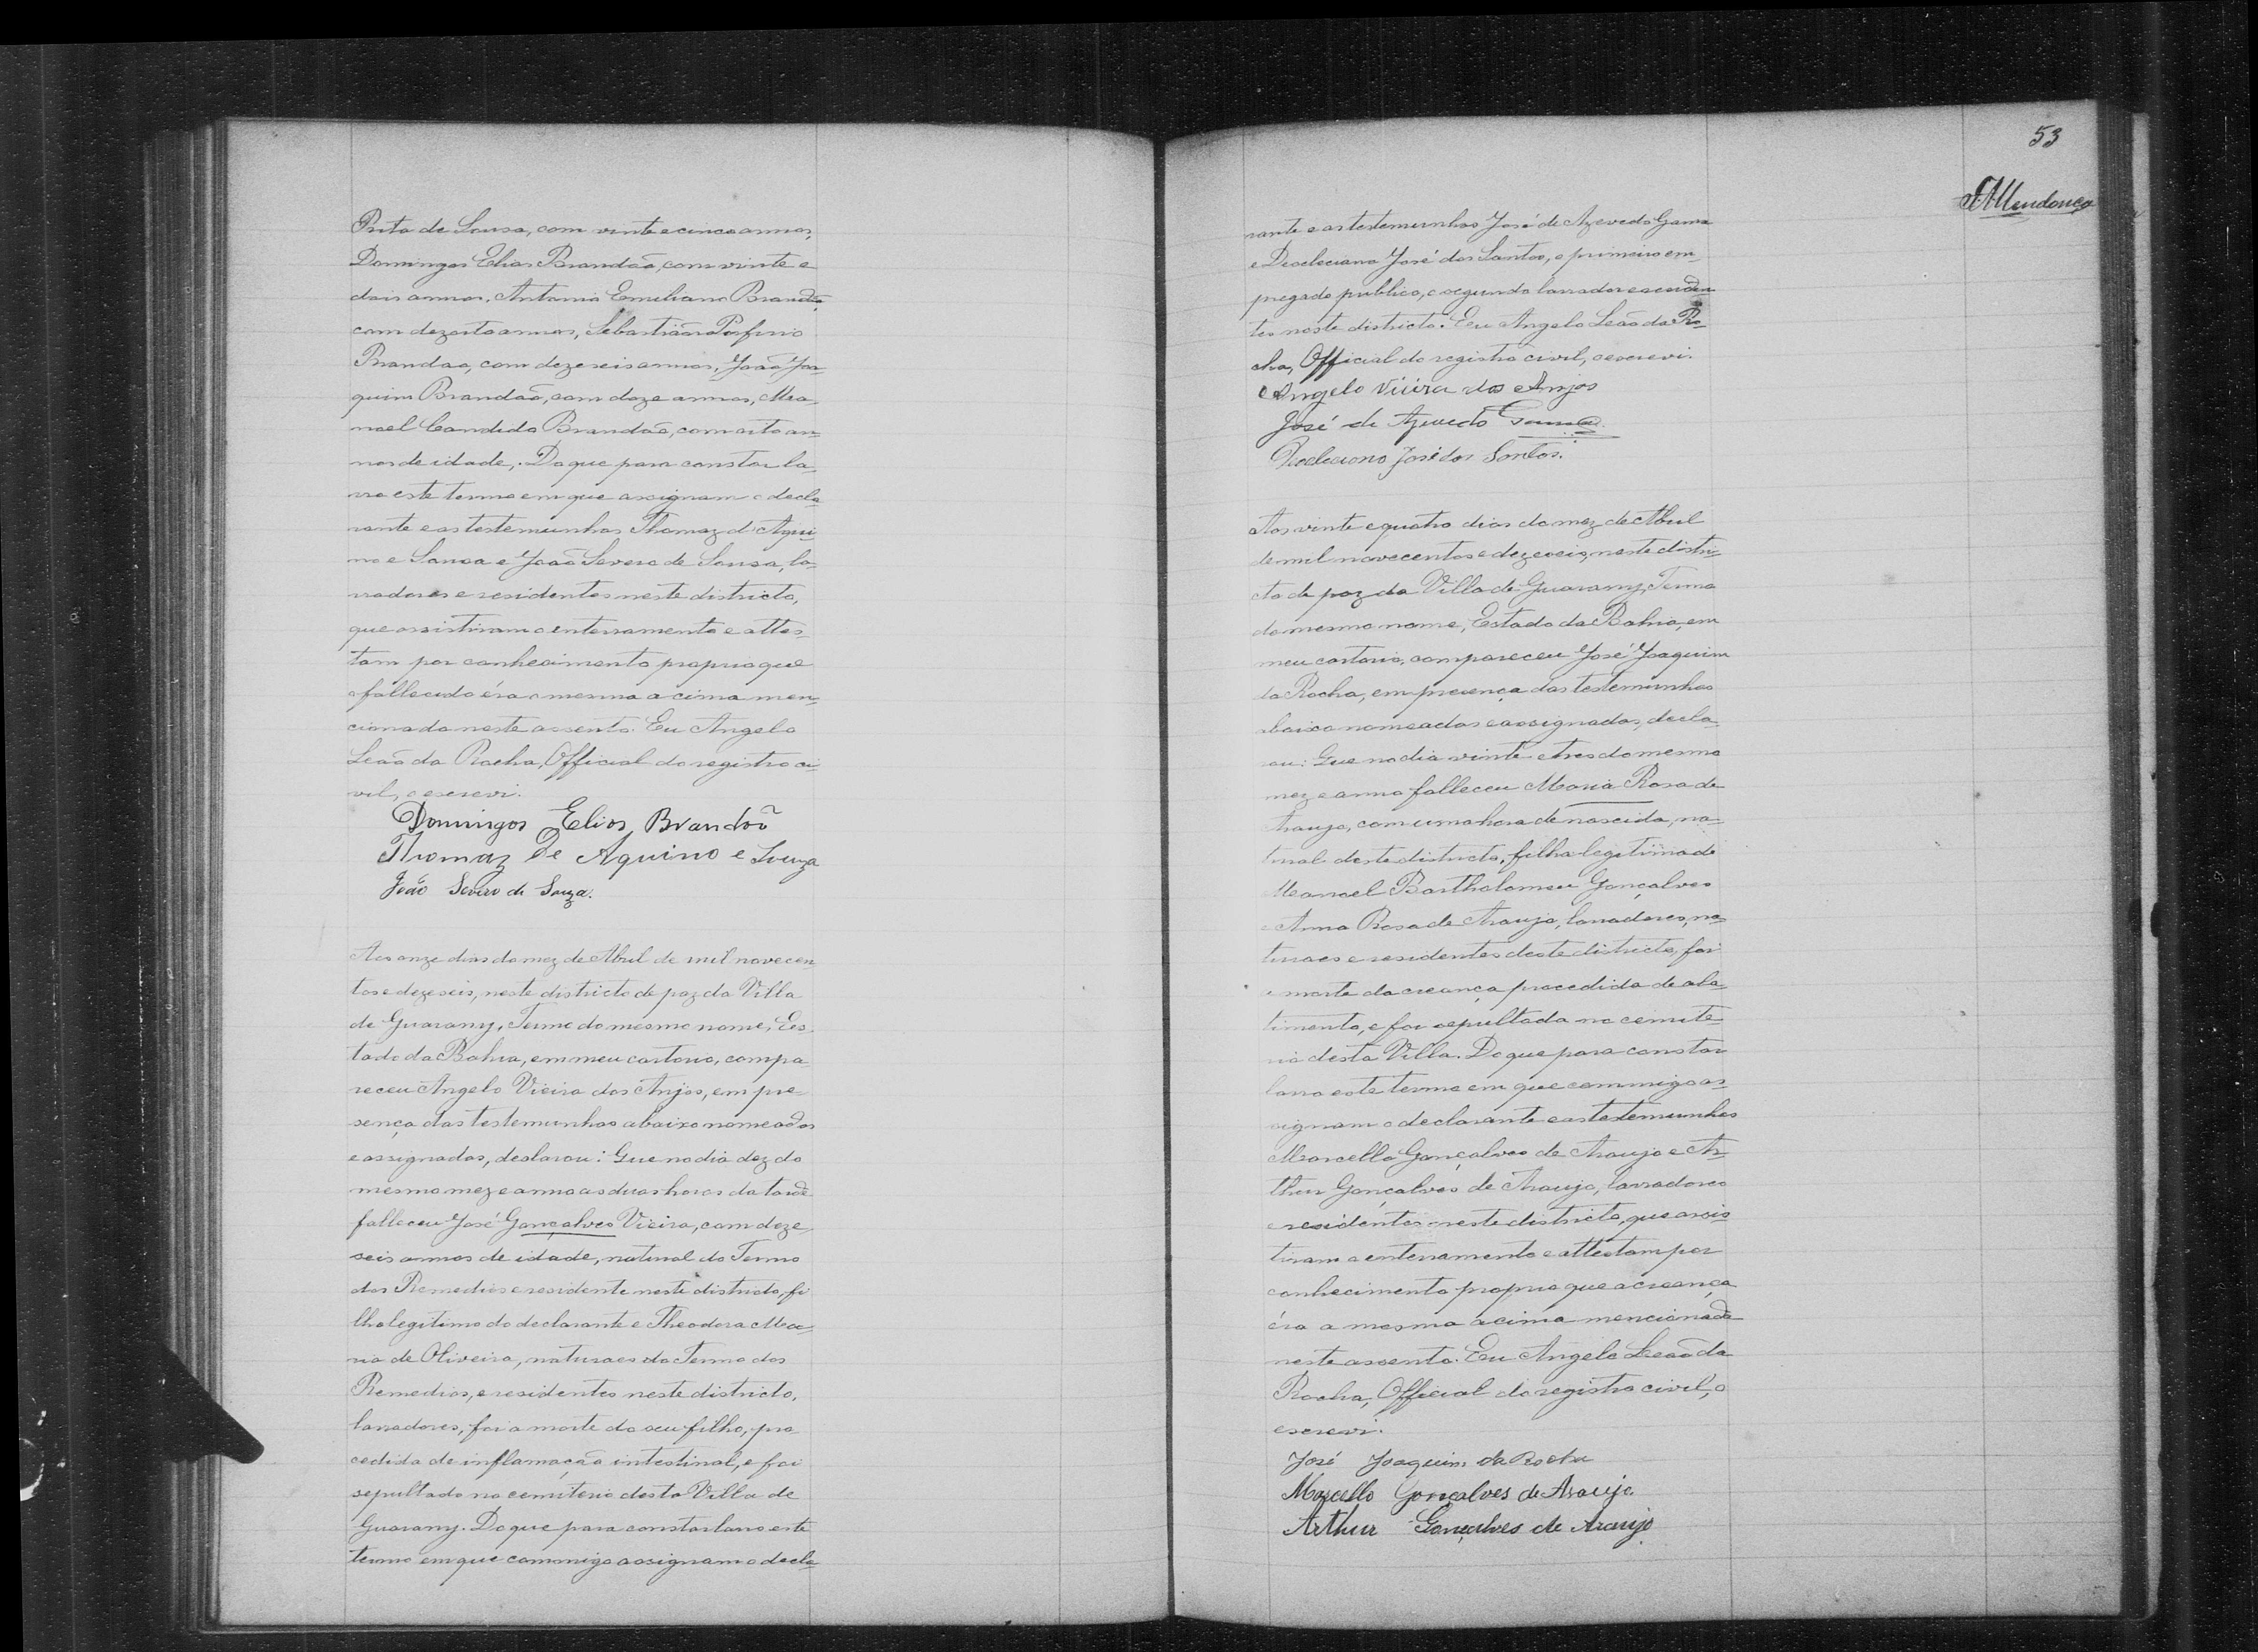 Brito de Sousa, com vinte e cinco annos,
Domingos Elias Brandaõ, com vinte e
dois annos, Antonio Emiliano Brandão,
com dezoito annos, Sebastiaõ Porfirio
Brandao, com dezeseis annos, Joaõ Joa-
quim Brandaõ, com doze annos, Ma-
noel Candido Brandaõ, com oito an-
nos de idade. Do que para constar la-
vro este termo em que assignam o decla-
rante e as testemunhas Thomaz d'Aqui-
no e Sousa e Joaõ Severo de Sousa, la-
vradores e residentes neste districto,
que assistiram o enterramento e attes-
tam por conhecimento proprio que
o fallecido éra o mesmo acima men-
cionado neste assento. Eu Angelo
Leaõ da Rocha, Official do registro ci-
vil, o escrevi.
Domingos Elias Brandaõ
Thomaz De Aquino e Souza
João Severo de Souza.
Aos onze dias do mez de Abril de mil novecen-
tos e dezeseis, neste districto de paz da Villa
de Guarany, Termo do mesmo nome, Es-
tado da Bahia, em meu cartorio, compa-
receu Angelo Vieira dos Anjos, em pre-
sença das testemunhas abaixo nomeadas
e assignadas, declarou: Que no dia dez do
mesmo mez e anno as duas horas da tarde
falleceu José Gonçalves Vieira, com deze-
seis annos de idade, natural do Termo
dos Remedios e residente neste districto, fi-
lho legitimo do declarante e Theodora Ma-
ria de Oliveira, naturaes do Termo dos
Remedios, e residentes neste districto,
lavradores, foi a morte do seu filho, pro-
cedida de inflamaçaõ intestinal, e foi
sepultado no cemiterio desta Villa de
Guarany. Do que para constar lavro este
termo em que commigo assignam o decla-
53
Mendonça
rante e as testemunhas José de Azevedo Gama
e Deocleciano José dos Santos, o primeiro em-
pregado publico, o segundo lavrador e residen-
tes neste districto. Eu Angelo Leaõ da Ro-
cha, Official do registro civil, o escrevi.
Angelo Vieira dos Anjos
José de Azevedo Gama
Deocleciano José dos Santos.
Aos vinte e quatro dias do mez de Abril
de mil novecentos e dezeseis, neste distri-
cto de paz da Villa de Guarany, Termo
do mesmo nome, Estado da Bahia, em
meu cartorio, compareceu José Joaquim
da Rocha, em presença das testemunhas
abaixo nomeadas e assignadas, decla-
rou: Que no dia vinte e tres do mesmo
mez e anno falleceu Maria Rosa de
Araujo, com uma hora de nascida, na-
tural deste districto, filha legitima de
Manoel Bartholomeu Gonçalves
e Anna Rosa de Araujo, lavradores, na-
turaes e residentes deste districto, foi
a morte da creança procedida de aba-
timento, e foi sepultada no cemite-
rio desta Villa. Do que para constar
lavro este termo em que commigo as-
signam o declarante e as testemunhas
Marcello Gonçalves de Araujo e Ar-
thur Gonçalves de Araujo, lavradores
e residentes neste districto, que assis-
tiram o enterramento e attestam por
conhecimento proprio que a creança
éra a mesma acima mencionada
neste assento. Eu Angelo Leaõ da
Rocha, Official do registro civil, o
escrevi.
José Joaquim da Rocha
Marcello Gonçalves de Araujo.
Arthur Gonçalves de Araujo